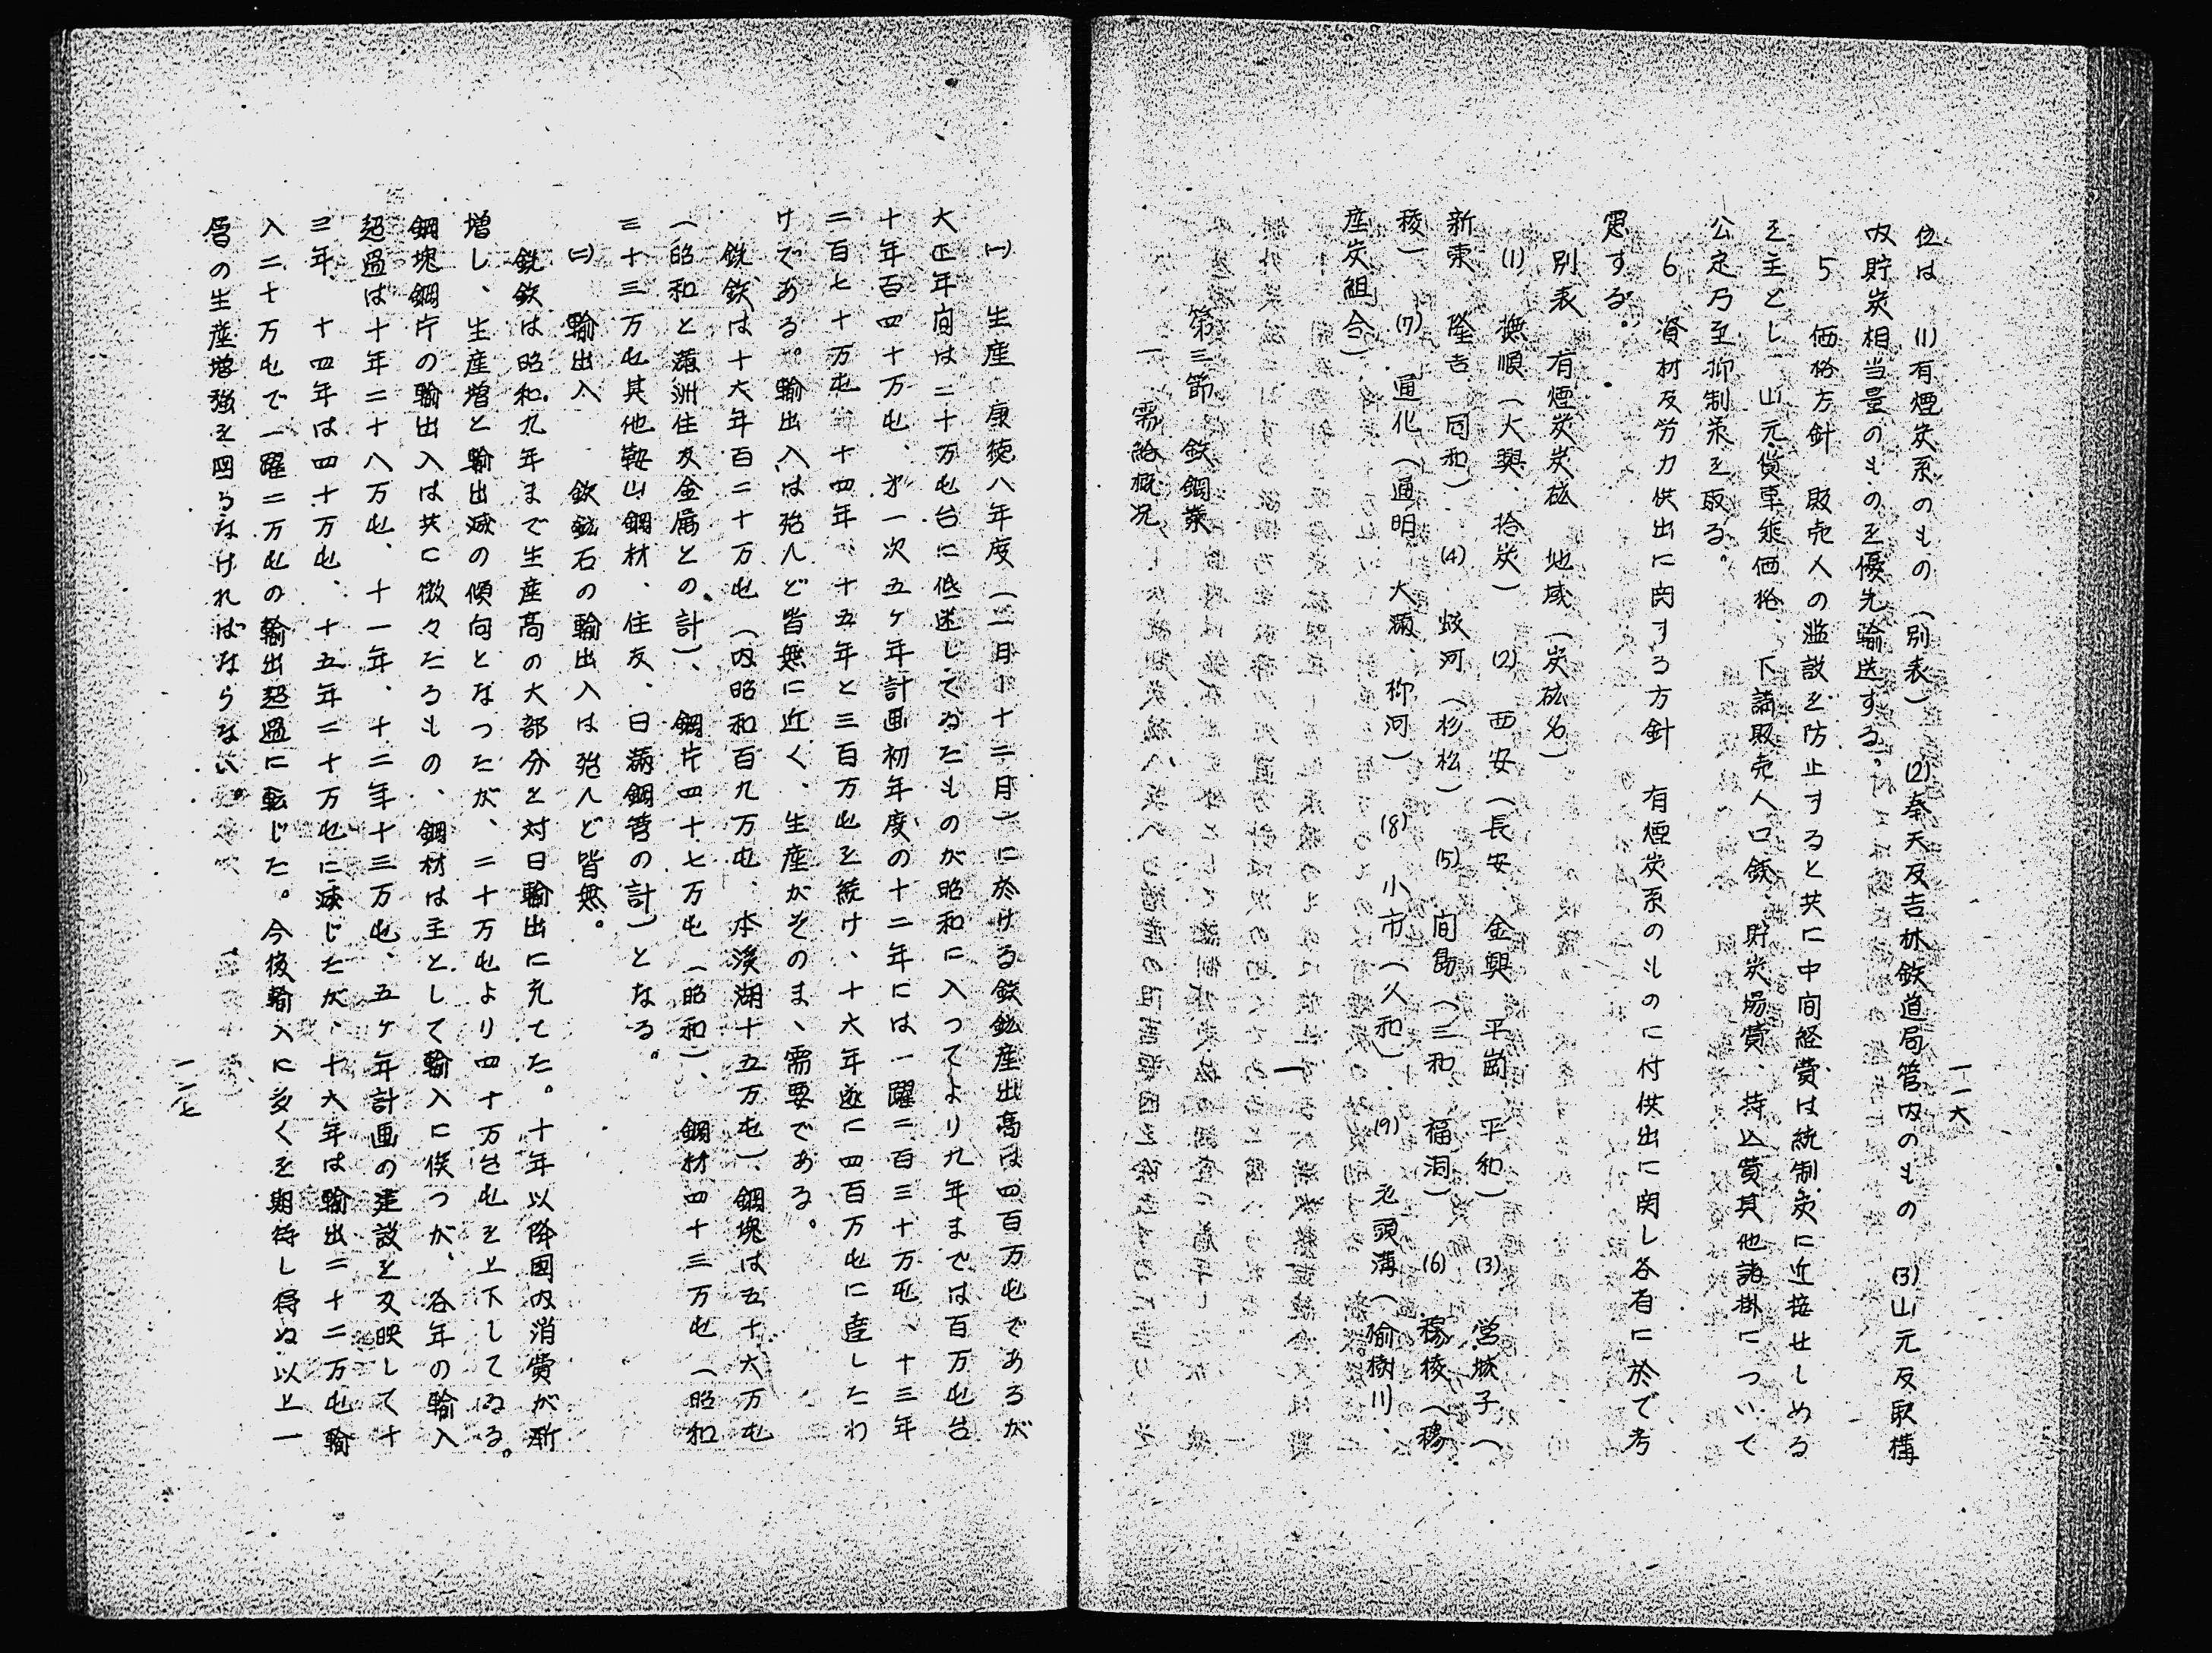 一二六
位は　(1)有煙炭系のもの（別表）　(2)奉天及吉林鉄道局管内のもの　(3)山元及駅構
内貯炭相当量のものを優先輸送する。
5　価格方針　販売人の濫設を防止すると共に中間経費は統制炭に近接せしめる
を主とし　山元貨車乗価格、下請販売人口銭、貯炭場費、持込費其他諸掛について
公定乃至抑制策を取る。
6　資材及労力供出に関する方針　有煙炭系のものに付供出に関し各省に於て考
慮する。
別表　有煙炭炭砿　地域（炭砿名）
(1)　撫順（大興、拾炭）　(2)　西安（長安、金興　平崗　平和）　(3)　営城子（
新東、隆吉　同和）　(4)　蛟河（杉松）　(5)　間島（三和　福洞）　(6)　穆稜（穆
稜）　(7)　通化（通明　大湖、柳河）　(8)　小市（久和）　(9)　老頭溝（楡樹川、
座炭組合）
第三節　鉄鋼業
一　需給概況
(一)　生産　康徳八年度（一月―十二月）に於ける鉄鉱産出高は四百万屯であるが
大正年間は二十万屯台に低迷してゐたものが昭和に入つてより九年までは百万屯台
十年百四十万屯、第一次五ヶ年計画初年度の十二年には一躍二百三十万屯、十三年
二百七十万屯　十四年、十五年と三百万屯を続け、十六年遂に四百万屯に達したわ
けである。輸出入は殆んど皆無に近く、生産がそのまゝ需要である。
銑鉄は十六年百二十万屯（内昭和百九万屯、本渓湖十五万屯）、鋼塊は五十六万屯
（昭和と満洲住友金属との計）、鋼片四十七万屯（昭和）、鋼材四十三万屯（昭和
三十三万屯其他鞍山鋼材、住友、日満鋼管の計）となる。
(二)　輸出入　鉄鉱石の輸出入は殆んど皆無。
銑鉄は昭和九年まで生産高の大部分を対日輸出に充てた。十年以降国内消費が漸
増し、生産増と輸出減の傾向となつたが、二十万屯より四十万台屯を上下してゐる。
鋼塊鋼片の輸出入は共に微々たるもの、鋼材は主として輸入に俟つが、各年の輸入
超過は十年二十八万屯、十一年、十二年十三万屯、五ヶ年計画の建設を反映して十
三年、十四年は四十万屯、十五年二十万屯に減じたが、十六年は輸出二十二万屯輸
入二十万屯で一躍二万屯の輸出超過に転じた。今後輸入に多くを期待し得ぬ以上一
層の生産増強を図るなければならない。
一二七